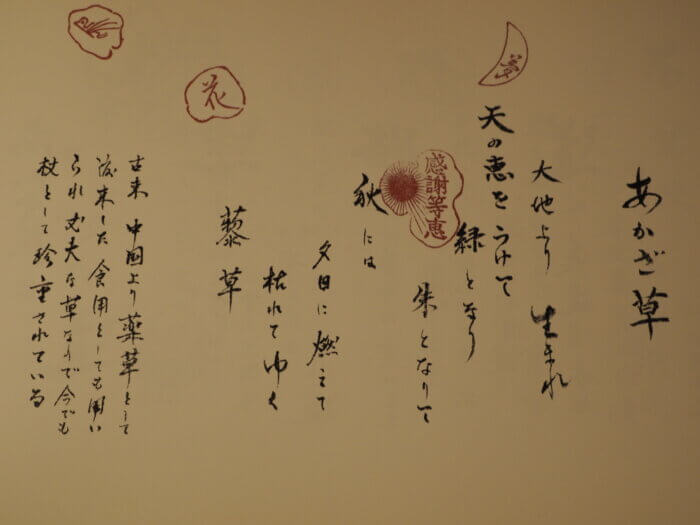 あかざ草
大地より 生まれ
天の恵をうけて
緑となり
朱となりて
秋には
夕日に燃えて
枯れてゆく
藜草
古来 中国より薬草として
渡来した 食用としても用い
られ 丈夫な草なので今でも
杖として珍重されている
夢
感謝等恵
花